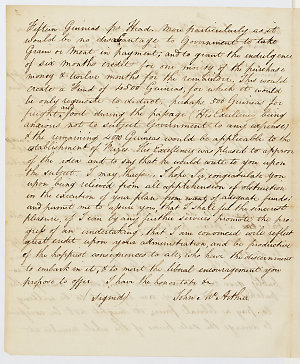 Fifteen Guineas pr Head. More particularly as it
would be no disadvantage to Government to take
Grain or Meat in payment; and to grant the indulgence
of six months credit for one moiety of the purchase
money & twelve months for the remainder. This would
create a Fund of 4500 Guineas, for which it would
be only requisite to deduct, perhaps 500 Guineas for
freight, food during the passage (His Excellency being
anxious not to subject Government to any expense)
& the remaining 4000 Guineas would be applicable to the
establishment of Prizes. His Excellency was pleased to approve
of the idea and to say that he would write to you upon
the subject. I may therefore, I hope Sir, congratulate you
upon being relieved from all apprehension of obstruction
in the execution of your plan from want of adequate funds:
and permit me to assure you that I shall feel the sincerest
pleasure, if I can by any further Services promote the pro
gress of an undertaking, that I am convinced will reflect
great credit upon your administration, and be productive
of the happiest consequences to all, who have the discernment
to embark in it, & to merit the liberal encouragement you
propose to offer. I have the honor to be &c
Signed/ John McArthur